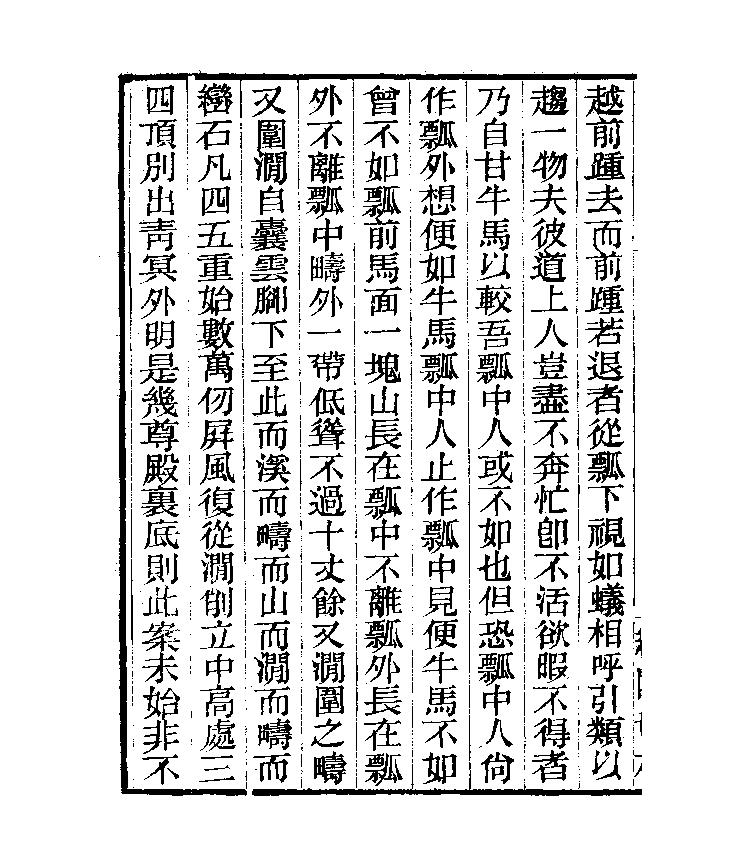 越前踵去而前踵若退者從瓢下視如蟻相呼引類以
趨一物夫彼道上人豈盡不奔忙卽不活欲暇不得者
乃自甘牛馬以較吾瓢中人或不如也但恐瓢中人尙
作瓢外想便如牛馬瓢中人止作瓢中見便牛馬不如
曾不如瓢前馬面一塊山長在瓢中不離瓢外長在瓢
外不離瓢中疇外一帶低聳不過十丈餘又澗圍之疇
又圍澗自囊雲腳下至此而溪而疇而山而澗而疇而
巒石凡四五重始數萬仞屛風復從澗削立中高處三
四頂別出靑冥外明是幾尊殿裏底則此案未始非不